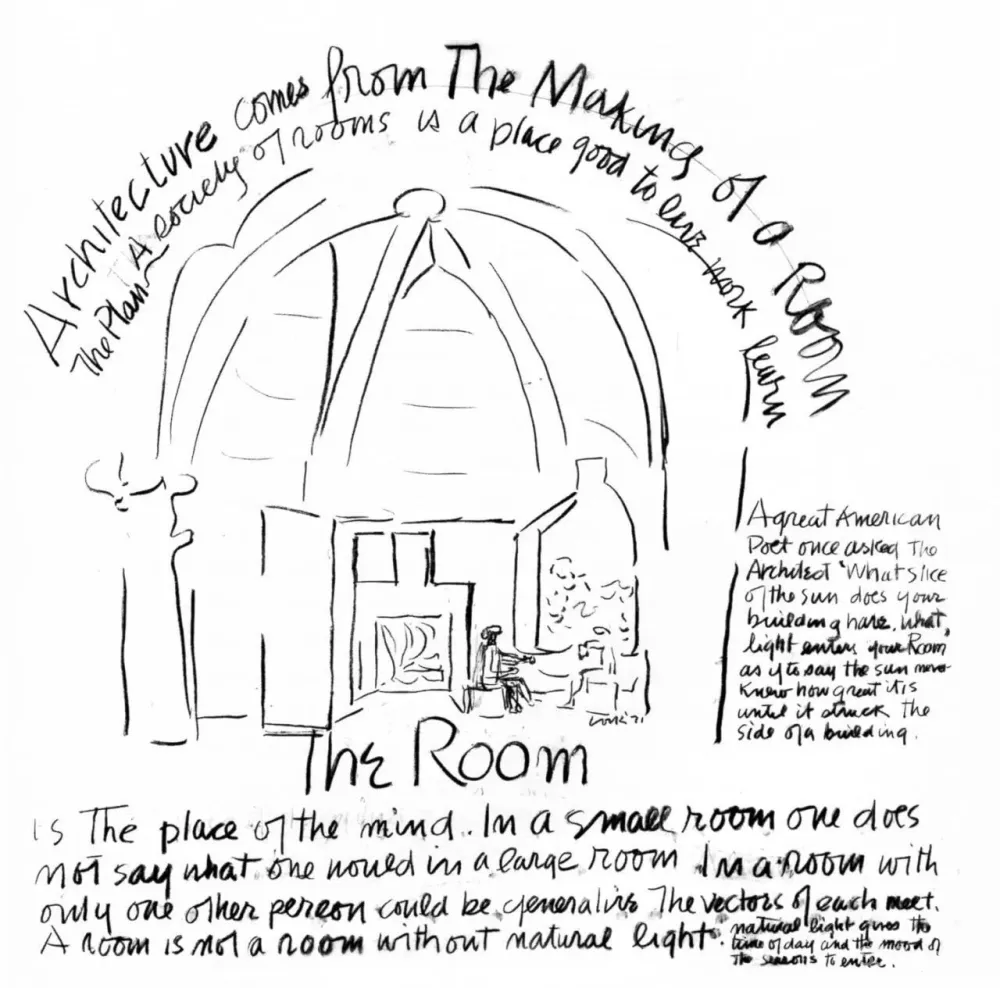 Architecture comes from The Making of a Room
The Plan A society of rooms is a place good to live work learn
A great American
Poet once asked The
Architect 'What slice
of the sun does your
building have. What
light enters your Room
as if to say the sun never
knew how great it is
until it struck the
side of a building.
The Room
is The place of the mind. In a small room one does
not say what one would in a large room In a room with
only one other person could be generative The vectors of each meet.
A room is not a room without natural light.
natural light gives the
time of day and the mood of
the seasons to enter.